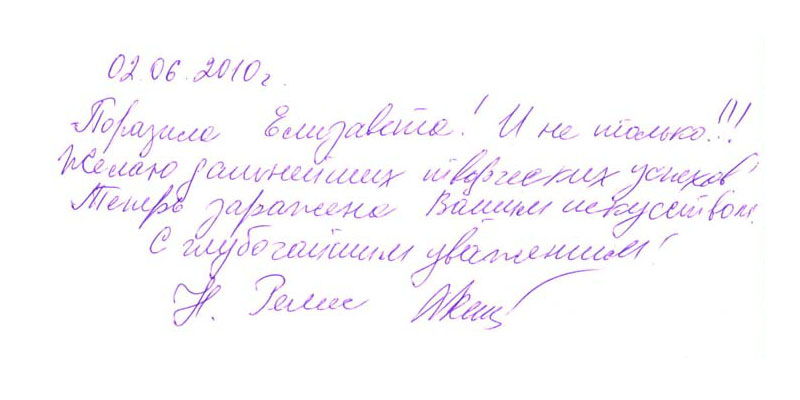 02.06.2010г.
Поразила Елизавета! И не только!!!
Желаю дальнейших творческих успехов!
Теперь заражена Вашим искусством.
С глубочайшим уважением!
Н.